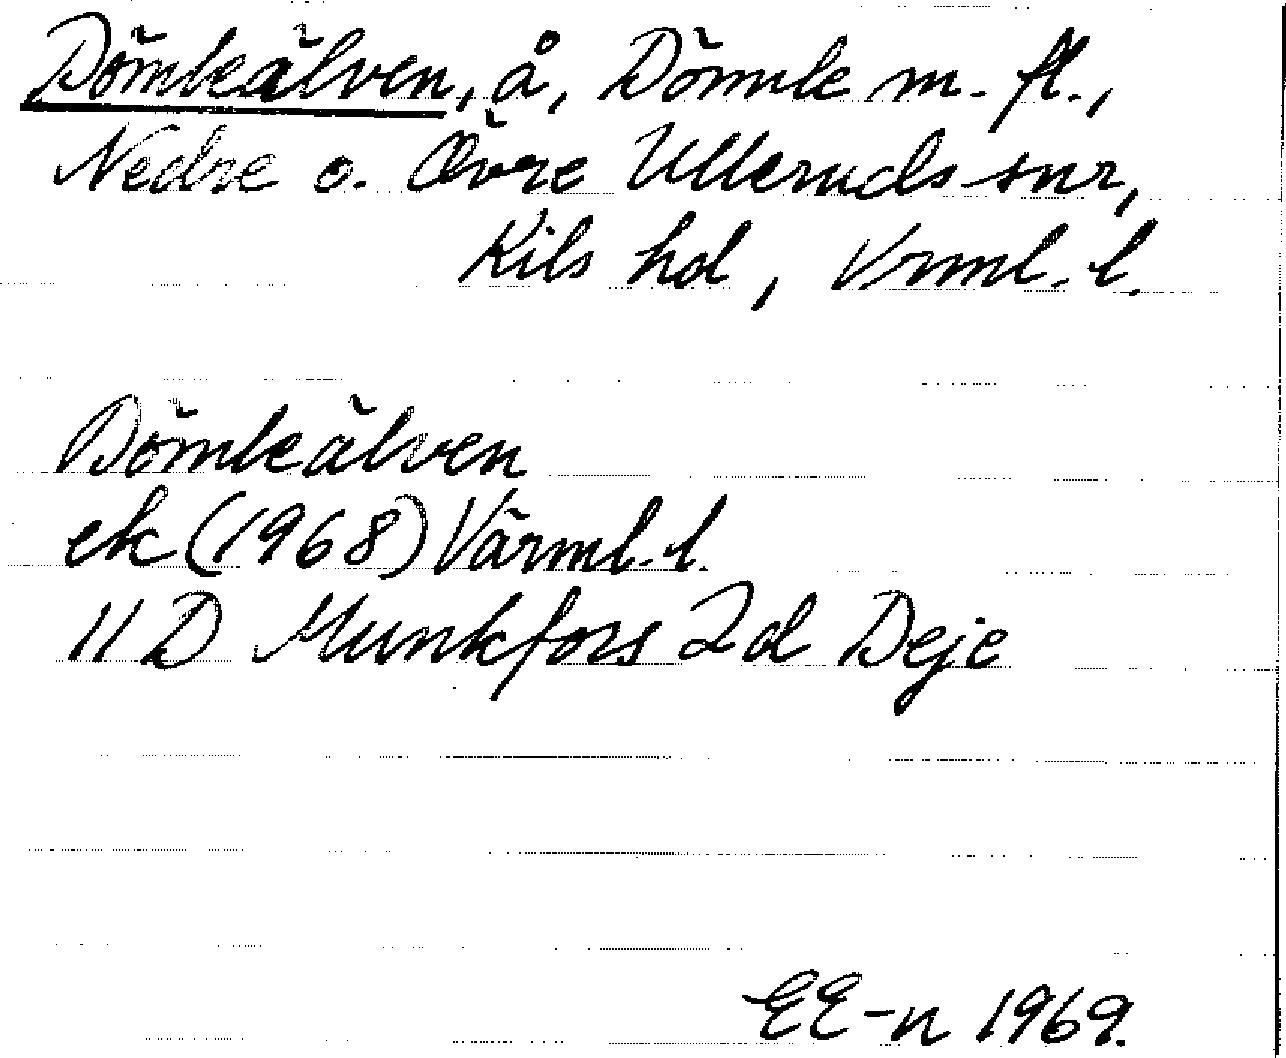 Dömleälven, å, Dömle m. fl.,
Nedre o. Övre Ulleruds snr,
Kils hd, Vrml. l.
Dömleälven
ek (1968) Värml. l.
11 D Munkfors 2d Deje
EE-n 1969.